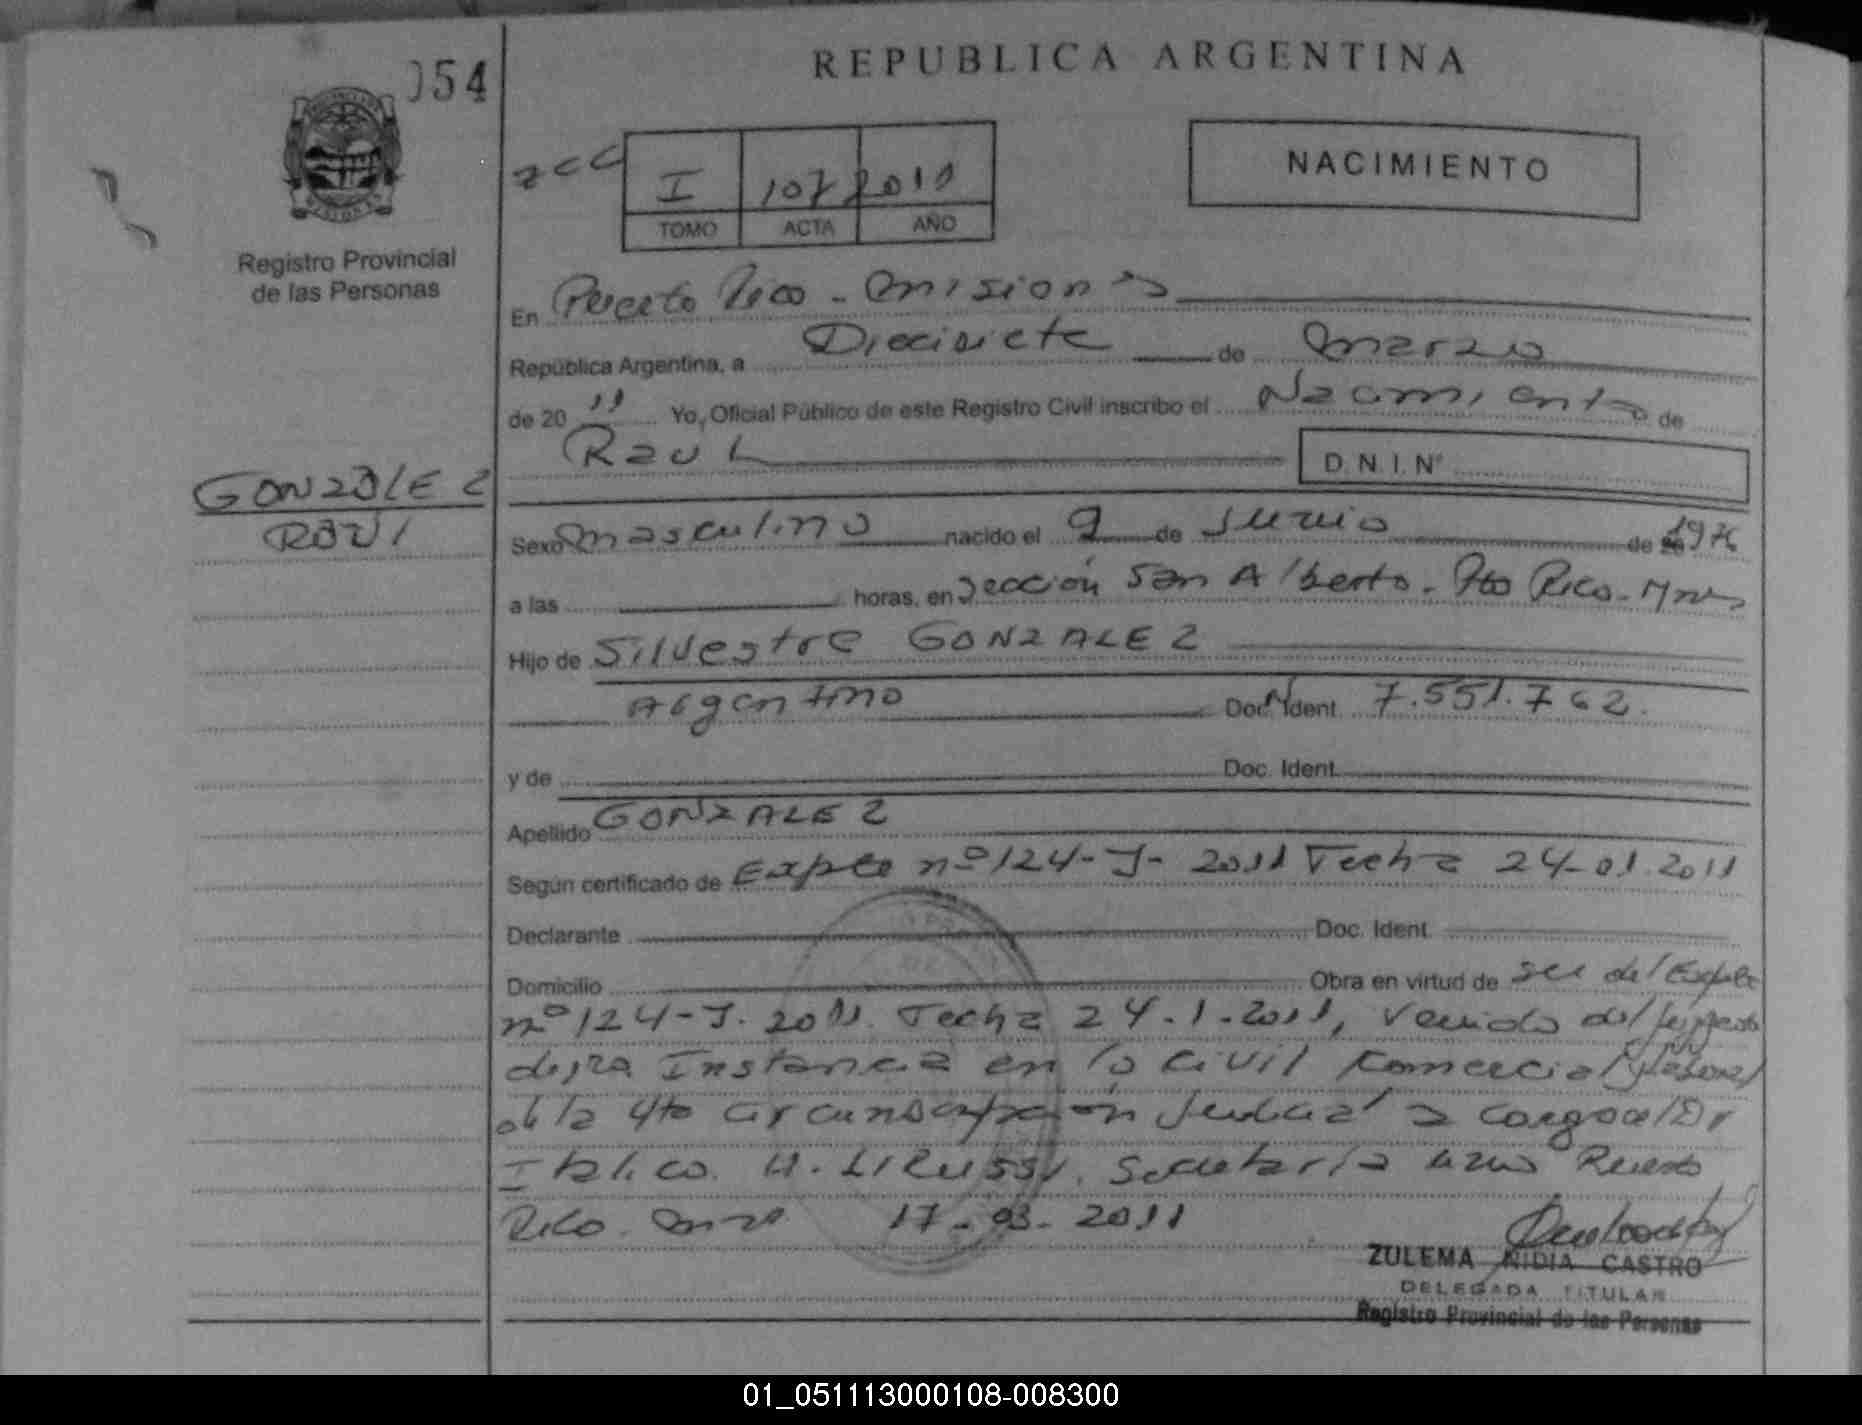 054
REPUBLICA ARGENTINA
I 107 2011
TOMO ACTA AÑO
NACIMIENTO
Registro Provincial
de las Personas
En Puerto Rico - Misiones
República Argentina, a Diecisiete de Marzo
de 20 11 Yo, Oficial Público de este Registro Civil inscribo el Nacimiento de
Raul D.N.I. Nº
GONZALEZ
RAUL
Sexo Masculino nacido el 9 de Junio de 1976
a las horas, en Sección San Alberto - Pto Rico - Mnes
Hijo de Silvestre GONZALEZ
Argentino Doc. Ident. 7.551.762.
y de Doc. Ident.
Apellido GONZALEZ
Según certificado de Expte nº 124-J-2011 Fecha 24-01.2011
Declarante Doc. Ident.
Domicilio Obra en virtud de del Expte
nº 124-J. 2011. Fecha 24.1.2011, venido del
de 1ra Instancia en lo Civil Comercial y Laboral
de la 4ta Circunscripción Judicial a cargo del Dr
Italico. Secretaría Puerto
Rico. 17-03-2011
ZULEMA NIDIA CASTRO
DELEGADA TITULAR
Registro Provincial de las Personas
01_051113000108-008300